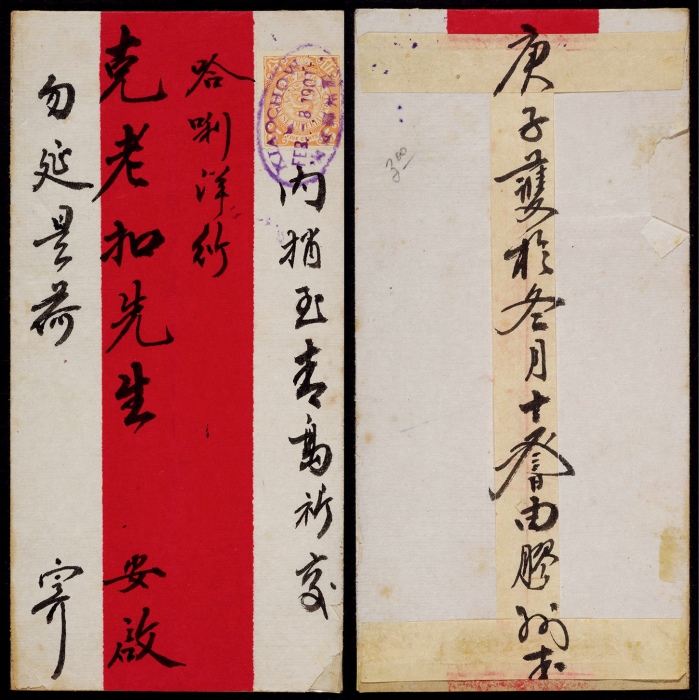 內捎至青島祈交
哈唎洋行
克老扣先生 安啟
勿延是荷 寄
KIAOCHOW
FEB -8 1901
庚子於冬月十由膠州